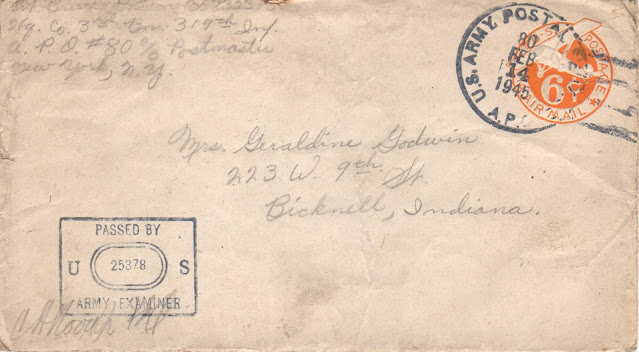 Hq. Co. 3rd Bn. 319th Inf.
A. P. O. #80 c/o Postmaster
New York, N.Y.
U.S. ARMY POSTAL
80
FEB
14
1945
A.P.
U.S. POSTAGE
6¢
AIR MAIL
Mrs. Geraldine Godwin
223 W. 9th St.
Bicknell, Indiana.
PASSED BY
U 25378 S
ARMY EXAMINER